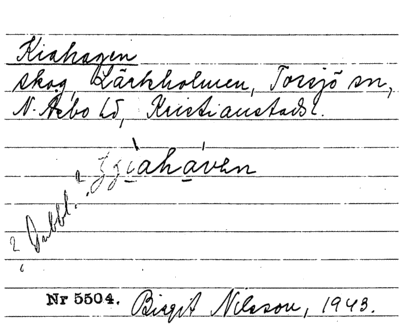 Kiahagen
skog, Lärkholmen, Torsjö sn,
N. Åsbo hd, Kristianstads l.
iahaven
? Dubbl. ?
Nr 5504. Birgit Nilsson, 1943.